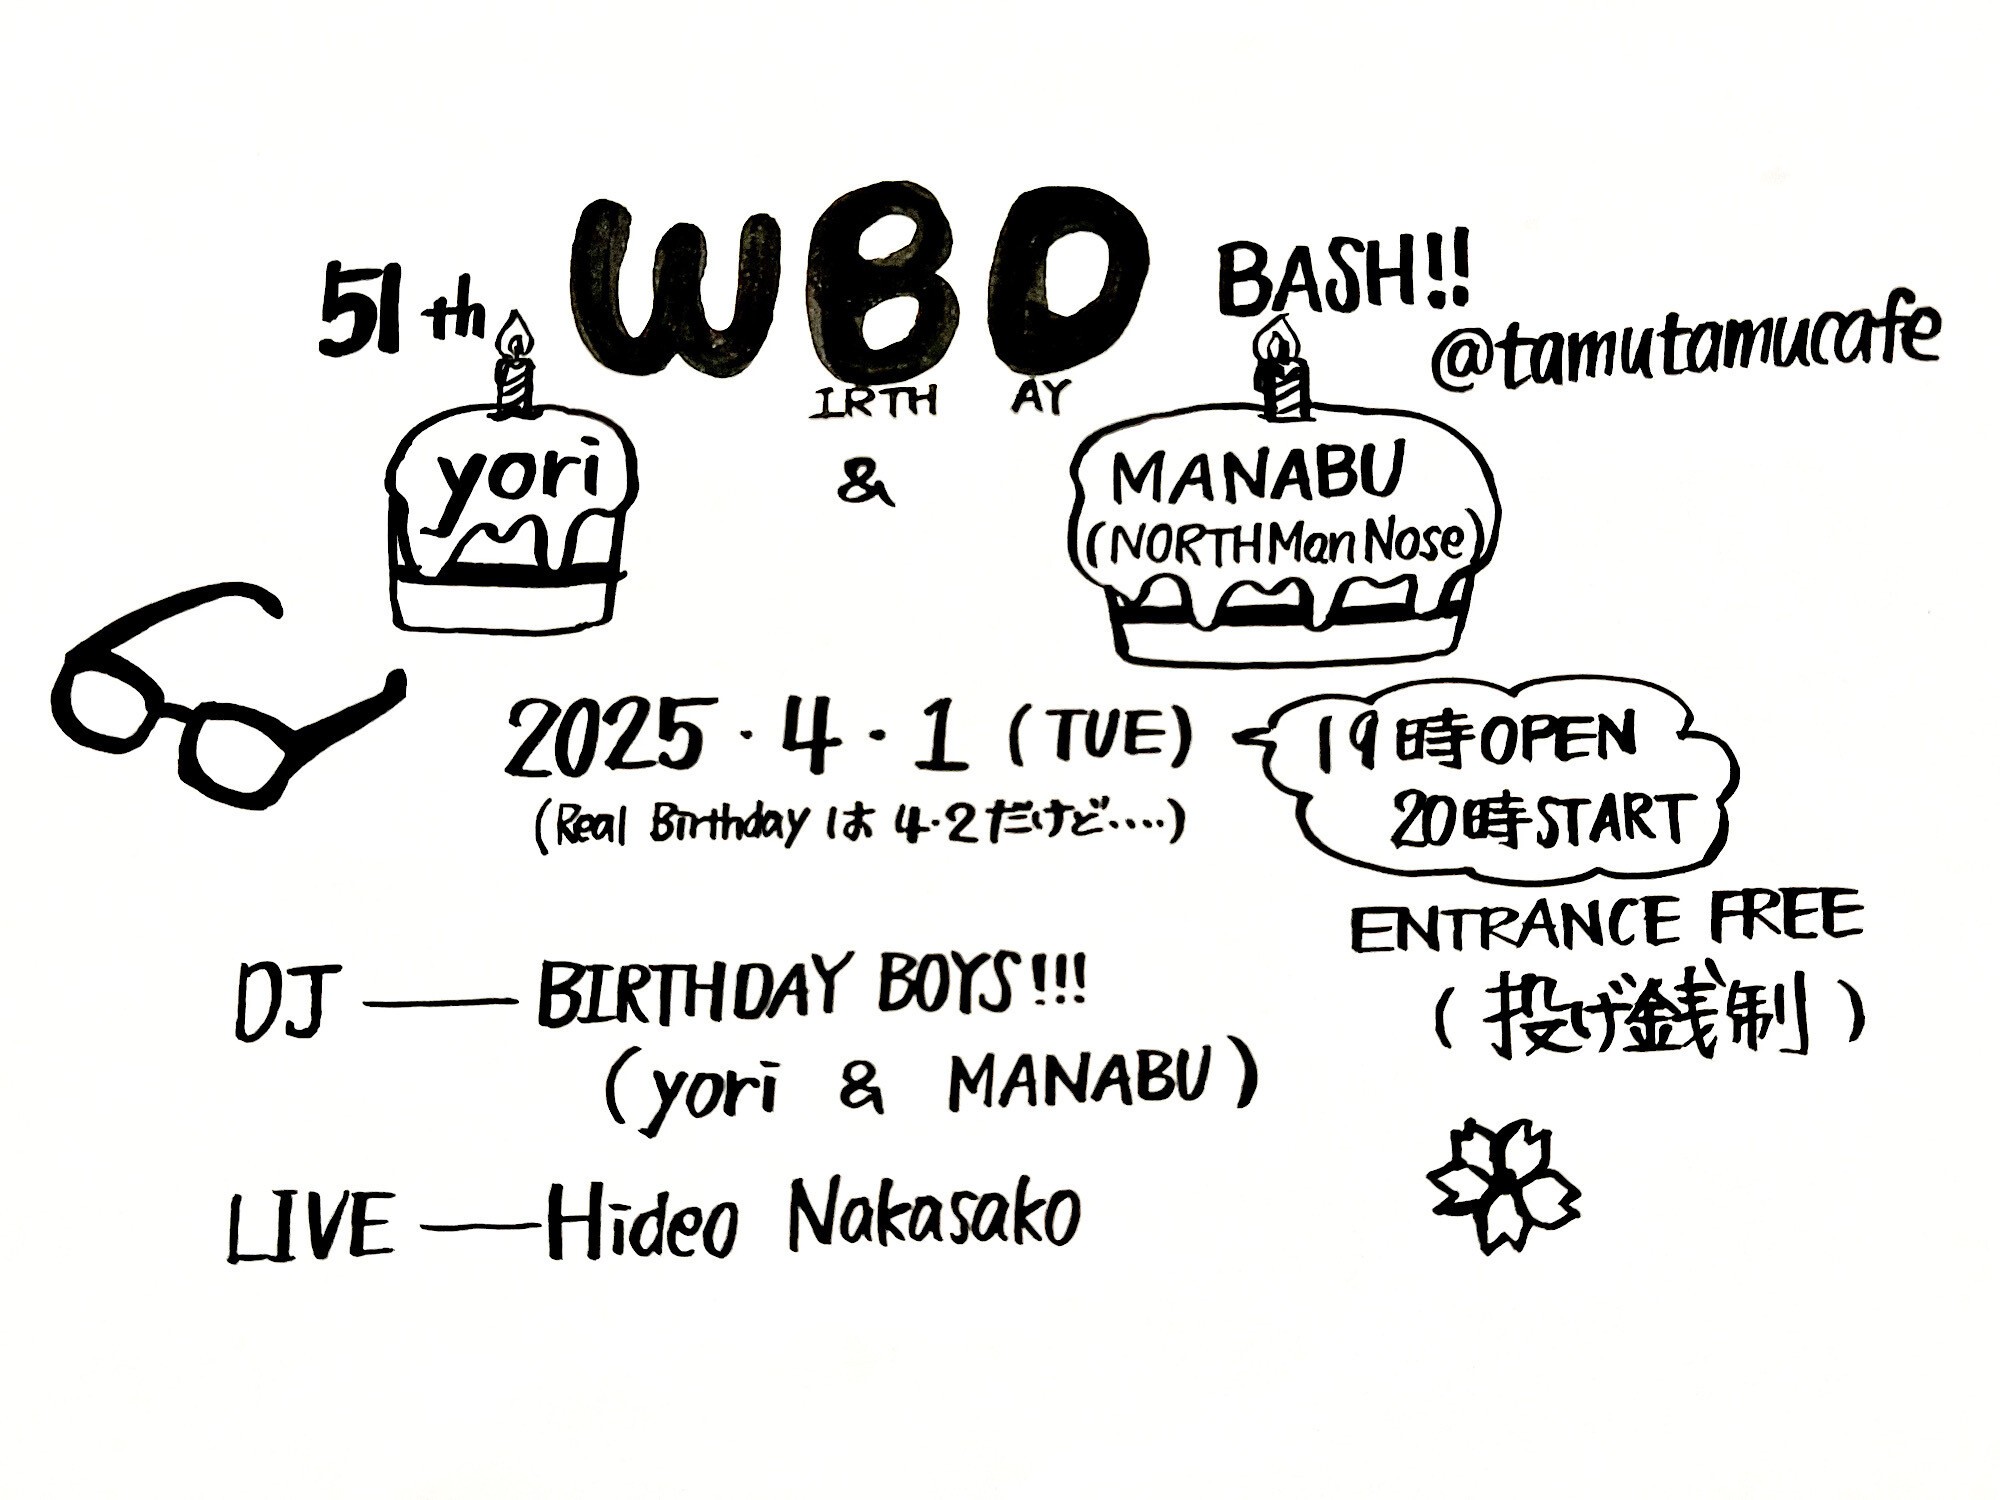 51th WBD BASH!!
IRTH AY
@tamutamucafe
yori & MANABU
(NORTHManNose)
2025・4・1 (TUE)
(Real Birthday は 4・2だけど‥‥)
19時OPEN
20時START
ENTRANCE FREE
(投げ銭制)
DJ — BIRTHDAY BOYS!!!
(yori & MANABU)
LIVE — Hideo Nakasako